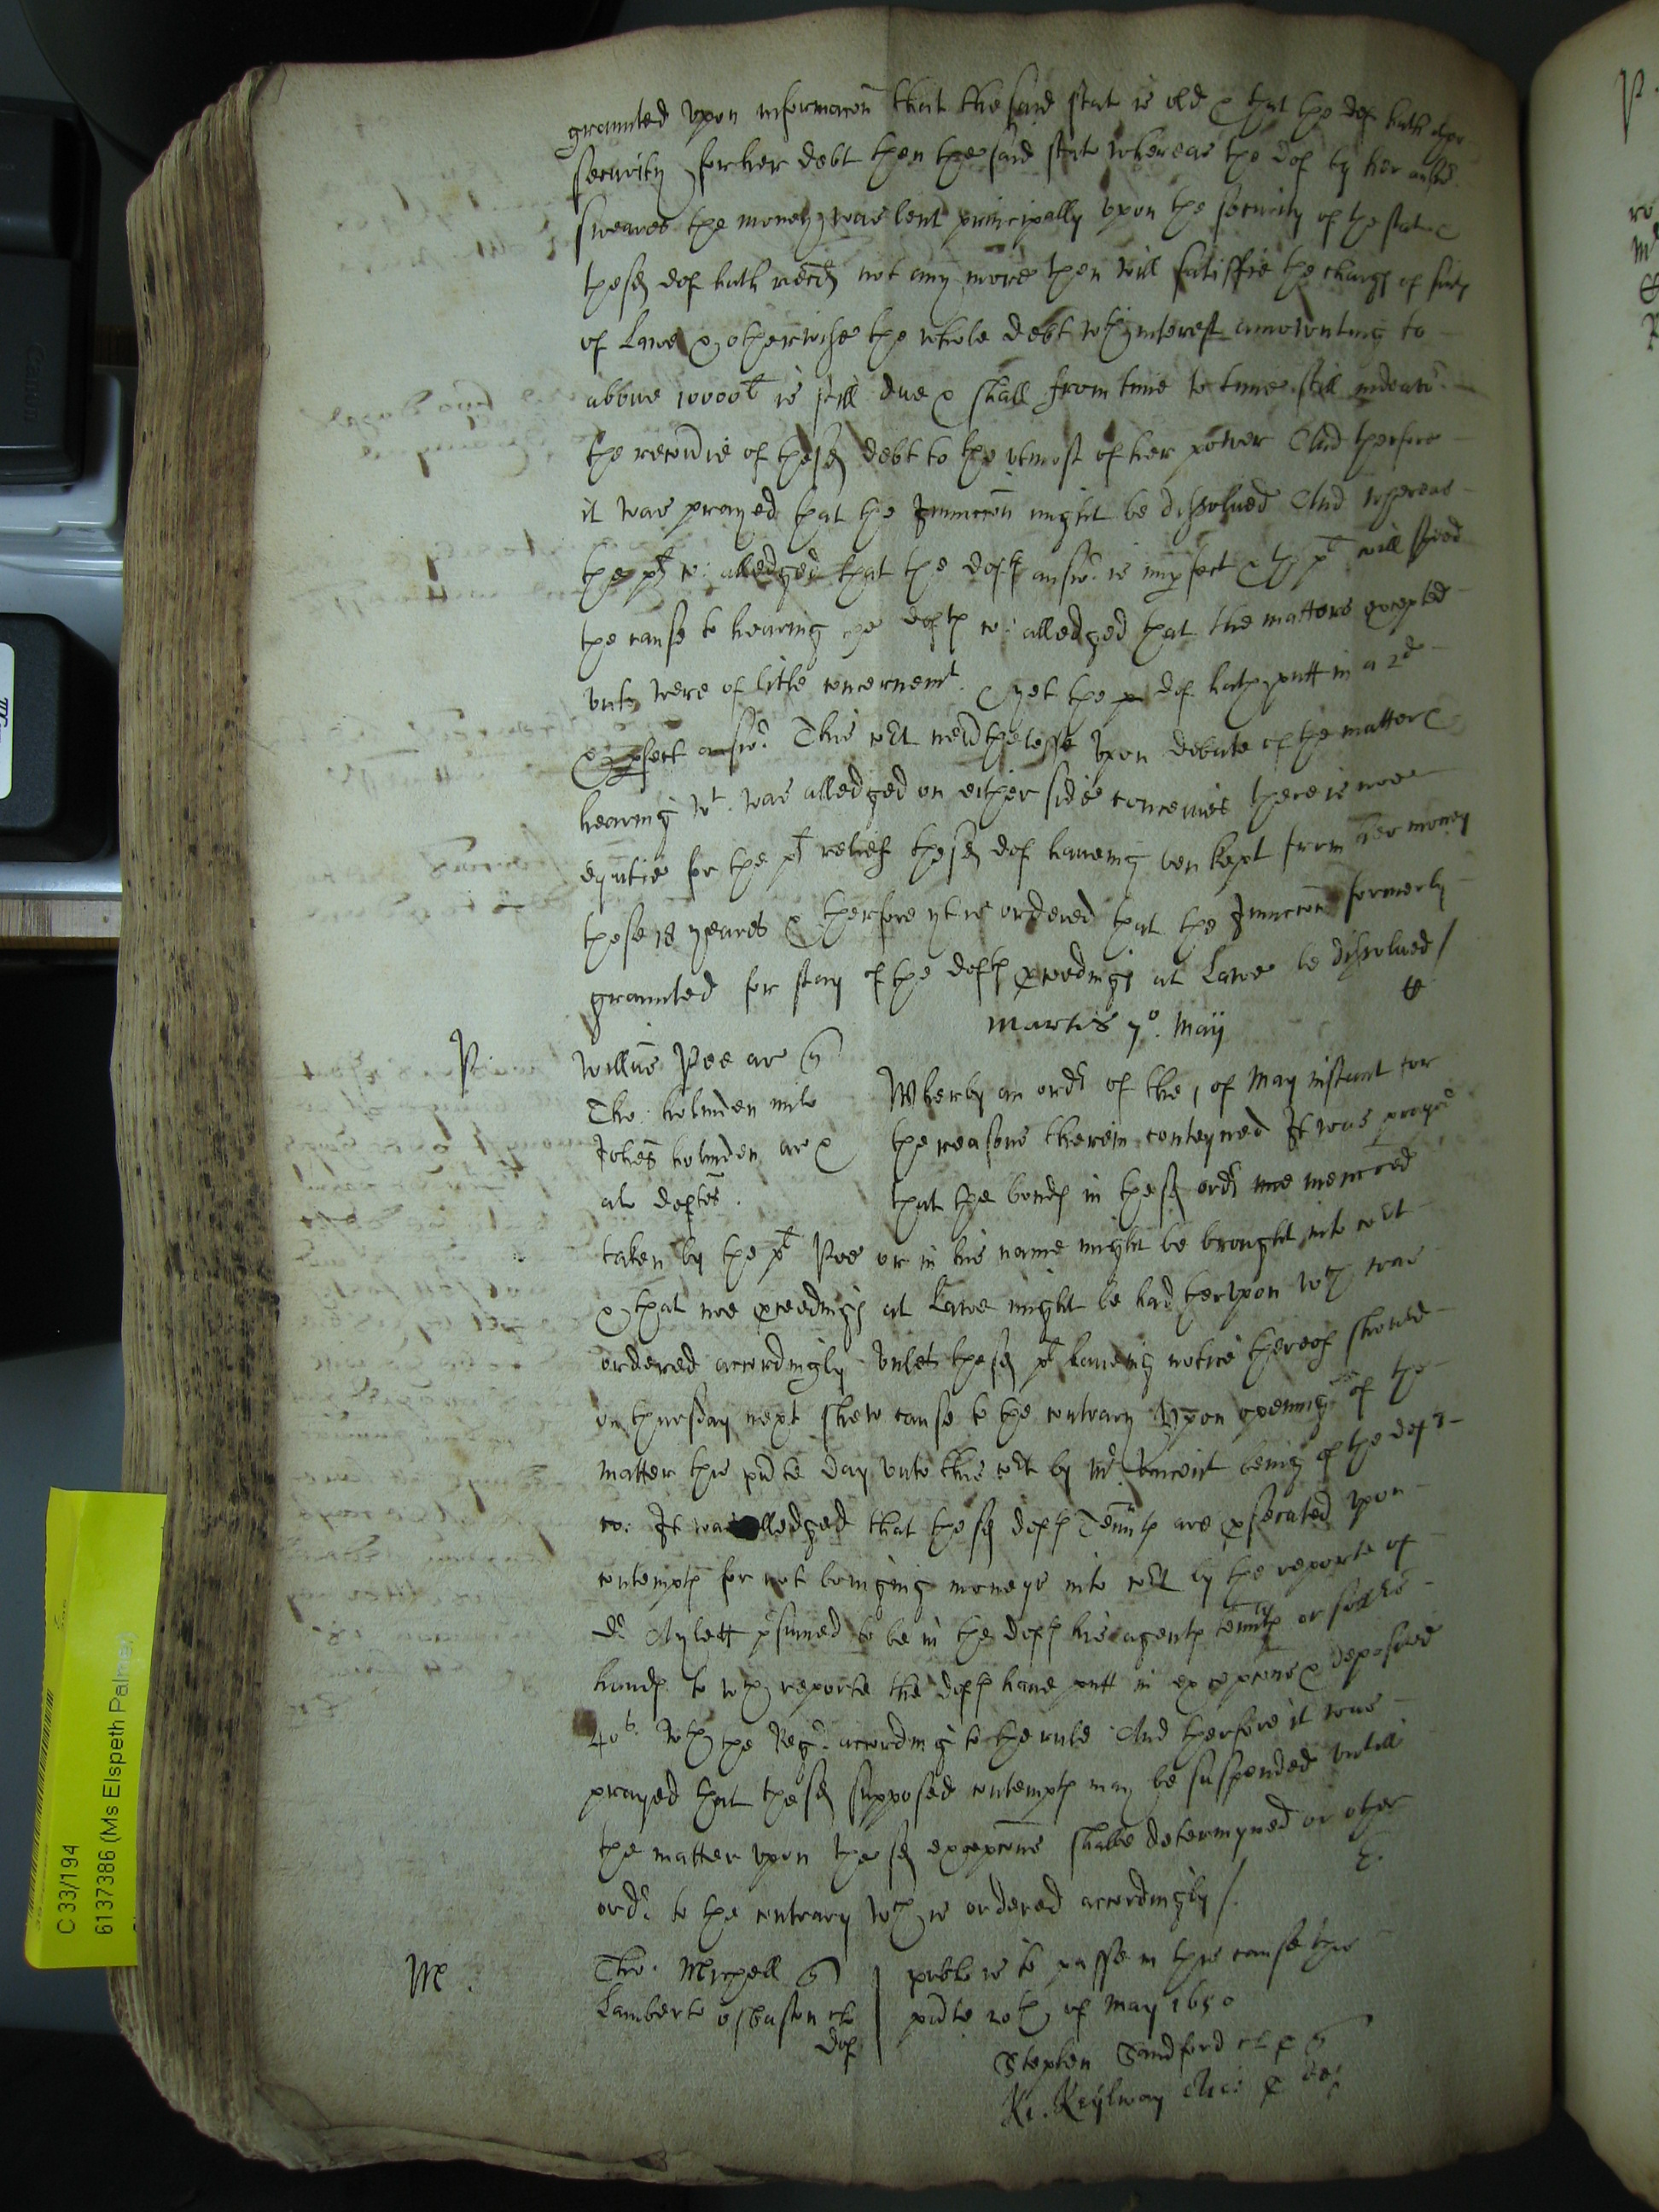 graunted upon informacon that the said stat is old & that the def hath other
security for her debt then the said state whereas the def by her answ
sweares the money was lent principally upon the security of the stat &
the sd def hath recd not any more then will satisfie the charges of suits
of Lawe & otherwise the whole debt wth interest amounting to
above 10000l is still due & shall from time to time still indeavr
the recovrie of the sd debt to the utmost of her power And therfore
it was prayed that the Iniunccon might be dissolved And whereas
the plts co: alledged that the defts answr is imperfect & the plt will speed
the cause to hearing the defts co: alledged that the matters excepted
unto were of litle concernemt. yet the def hath putt in a 2d
& perfect answr. This cort nevertheless upon debate of the matter &
hearing wt was alledged on either side conceives there is noe
equitie for the plts relief the sd def haveing ben kept from her money
these 18 yeares & therfore yt is ordered that the Iniunccon formerly
graunted for stay of the defts proceedings at Lawe be dissolved/
Martis 7o. Maij
P
Willus Poe ar
Tho: Holmden mile
Johes Holmden ar &
alo deftes.
Wherby an ordr of the 1 of May instant for
the reasons therein conteyned It was prayed
that the bonds in the sd ordr menconed
taken by the plt Poe or in his name might be brought into cort
& that noe proceedings at Lawe might be had therupon wch was
ordered accordingly unles the sd plt haveing notice thereof should
on thursday next shew cause to the contrary Upon opening of the
matter this pnte day unto this cort by Mr being of the defts
co: It was alledged that the sd defts Tennts are prosecuted upon
contempts for not bringing moneys into cort by the reporte of
Dr Aylett psumed to be in the defts his agents tennts or
hands to wch reporte the defts have putt in excepcons & deposited
40s. wth the Regr. according to the rule And therfore it was
prayed that the sd supposed contempts may be suspended untill
the matter upon the sd excepcons shalbe determyned or other
ordr. to the contrary wch is ordered accordingly/.
M.
Tho. Michell
Lamberto Osbaston
def
publc is to passe in this cause this
pnte 20th of May 1650
Stephen Sandford
Ri. Keylway
C 33/194
6137386 (Ms Elspeth Palmer)